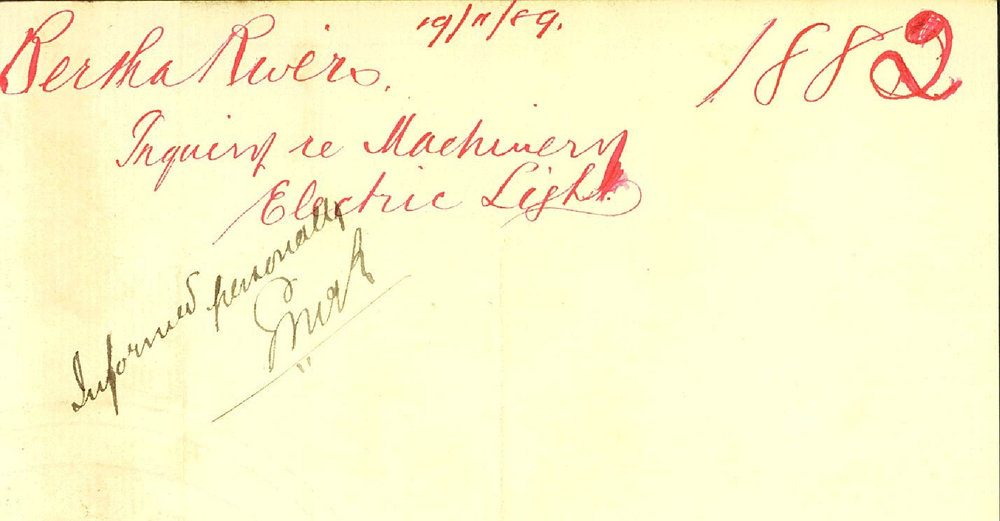 19/11/89.
Bertha Rivers. 1882
Inquiry re Machinery
Electric Light
Informed personally